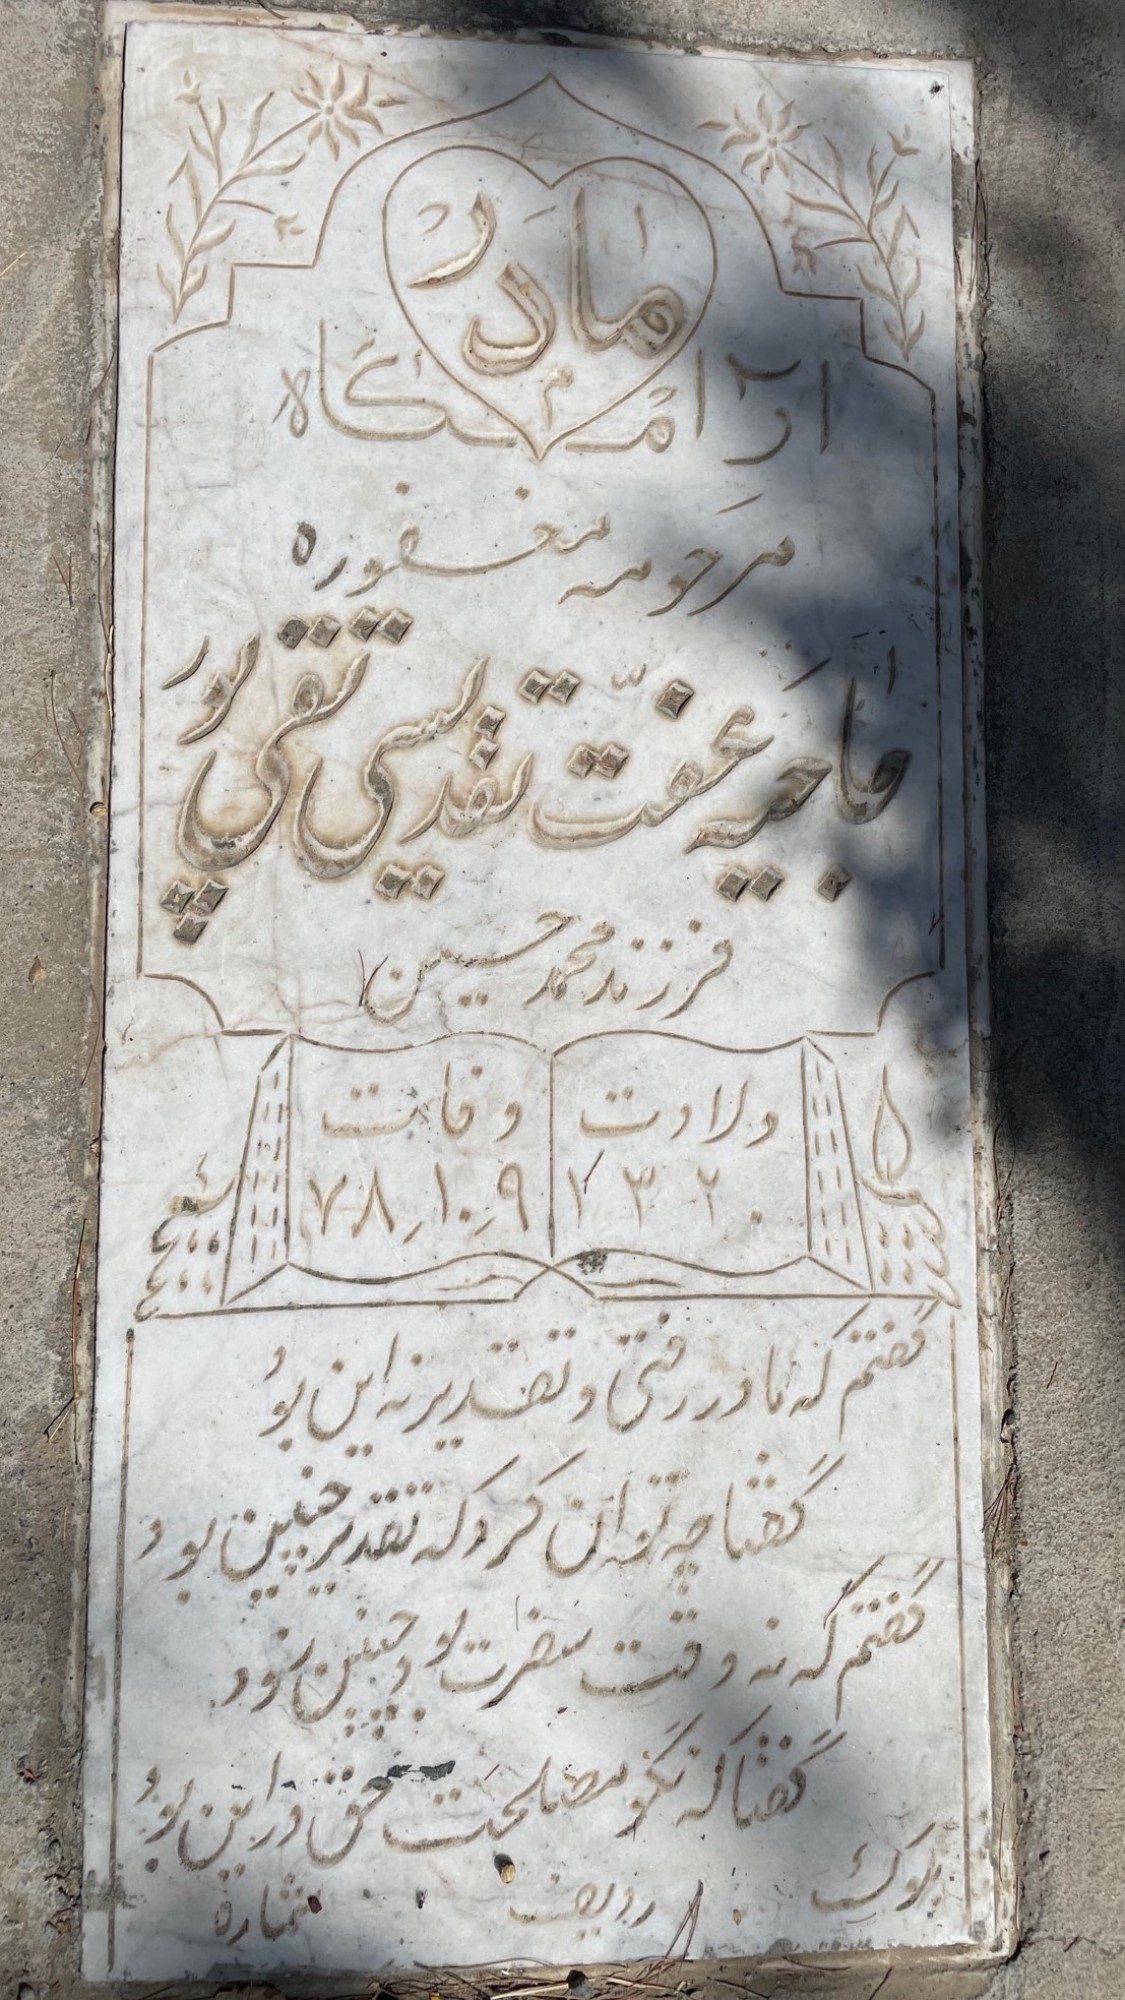 مادر
آرامگاه
مرحومه مغفوره
حاجیه عفّت تقدیسی تقی پور
فرزند محمد حسین
ولادت وفات
۱۳۲۰ ۷۸٫۱۰٫۹
گفتم که مادر رفتی و تقدیر نه این بود
گفتا چه توان کرد که تقدیر چنین بود
گفتم که نه وقت سفرت بود چنین زود
گفتا که نگو مصلحت حق در این بود
بلوک ردیف شماره